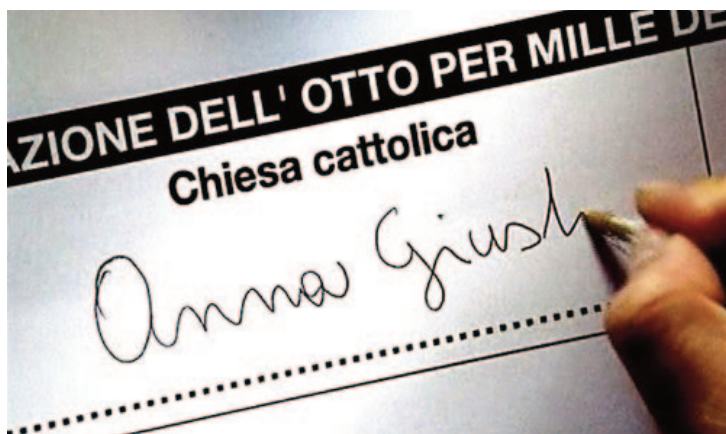 AZIONE DELL' OTTO PER MILLE DE
Chiesa cattolica
Anna Giust